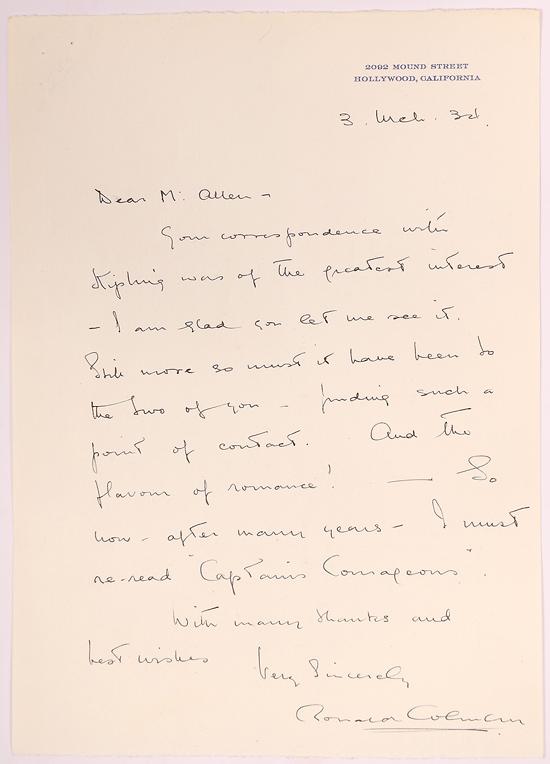 2092 MOUND STREET
HOLLYWOOD, CALIFORNIA
3. Mch. 34.
Dear Mr. Allen –
Your correspondence with
Kipling was of the greatest interest
– I am glad you let me see it.
Still more so must it have been to
the two of you – finding such a
point of contact. And the
flavour of romance! — So
now – after many years – I must
re-read "Captains Courageous".
With many thanks and
best wishes
Very Sincerely
Ronald Colman